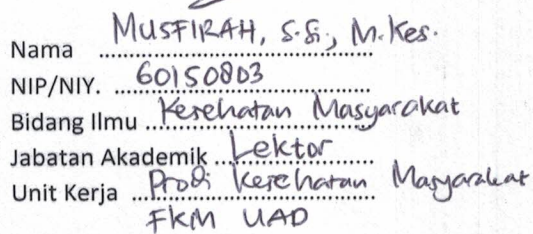 Nama MUSFIRAH, S.Si., M.Kes.
NIP/NIY. 60150803
Bidang Ilmu Kesehatan Masyarakat
Jabatan Akademik Lektor
Unit Kerja Prodi Kesehatan Masyarakat
FKM UAD